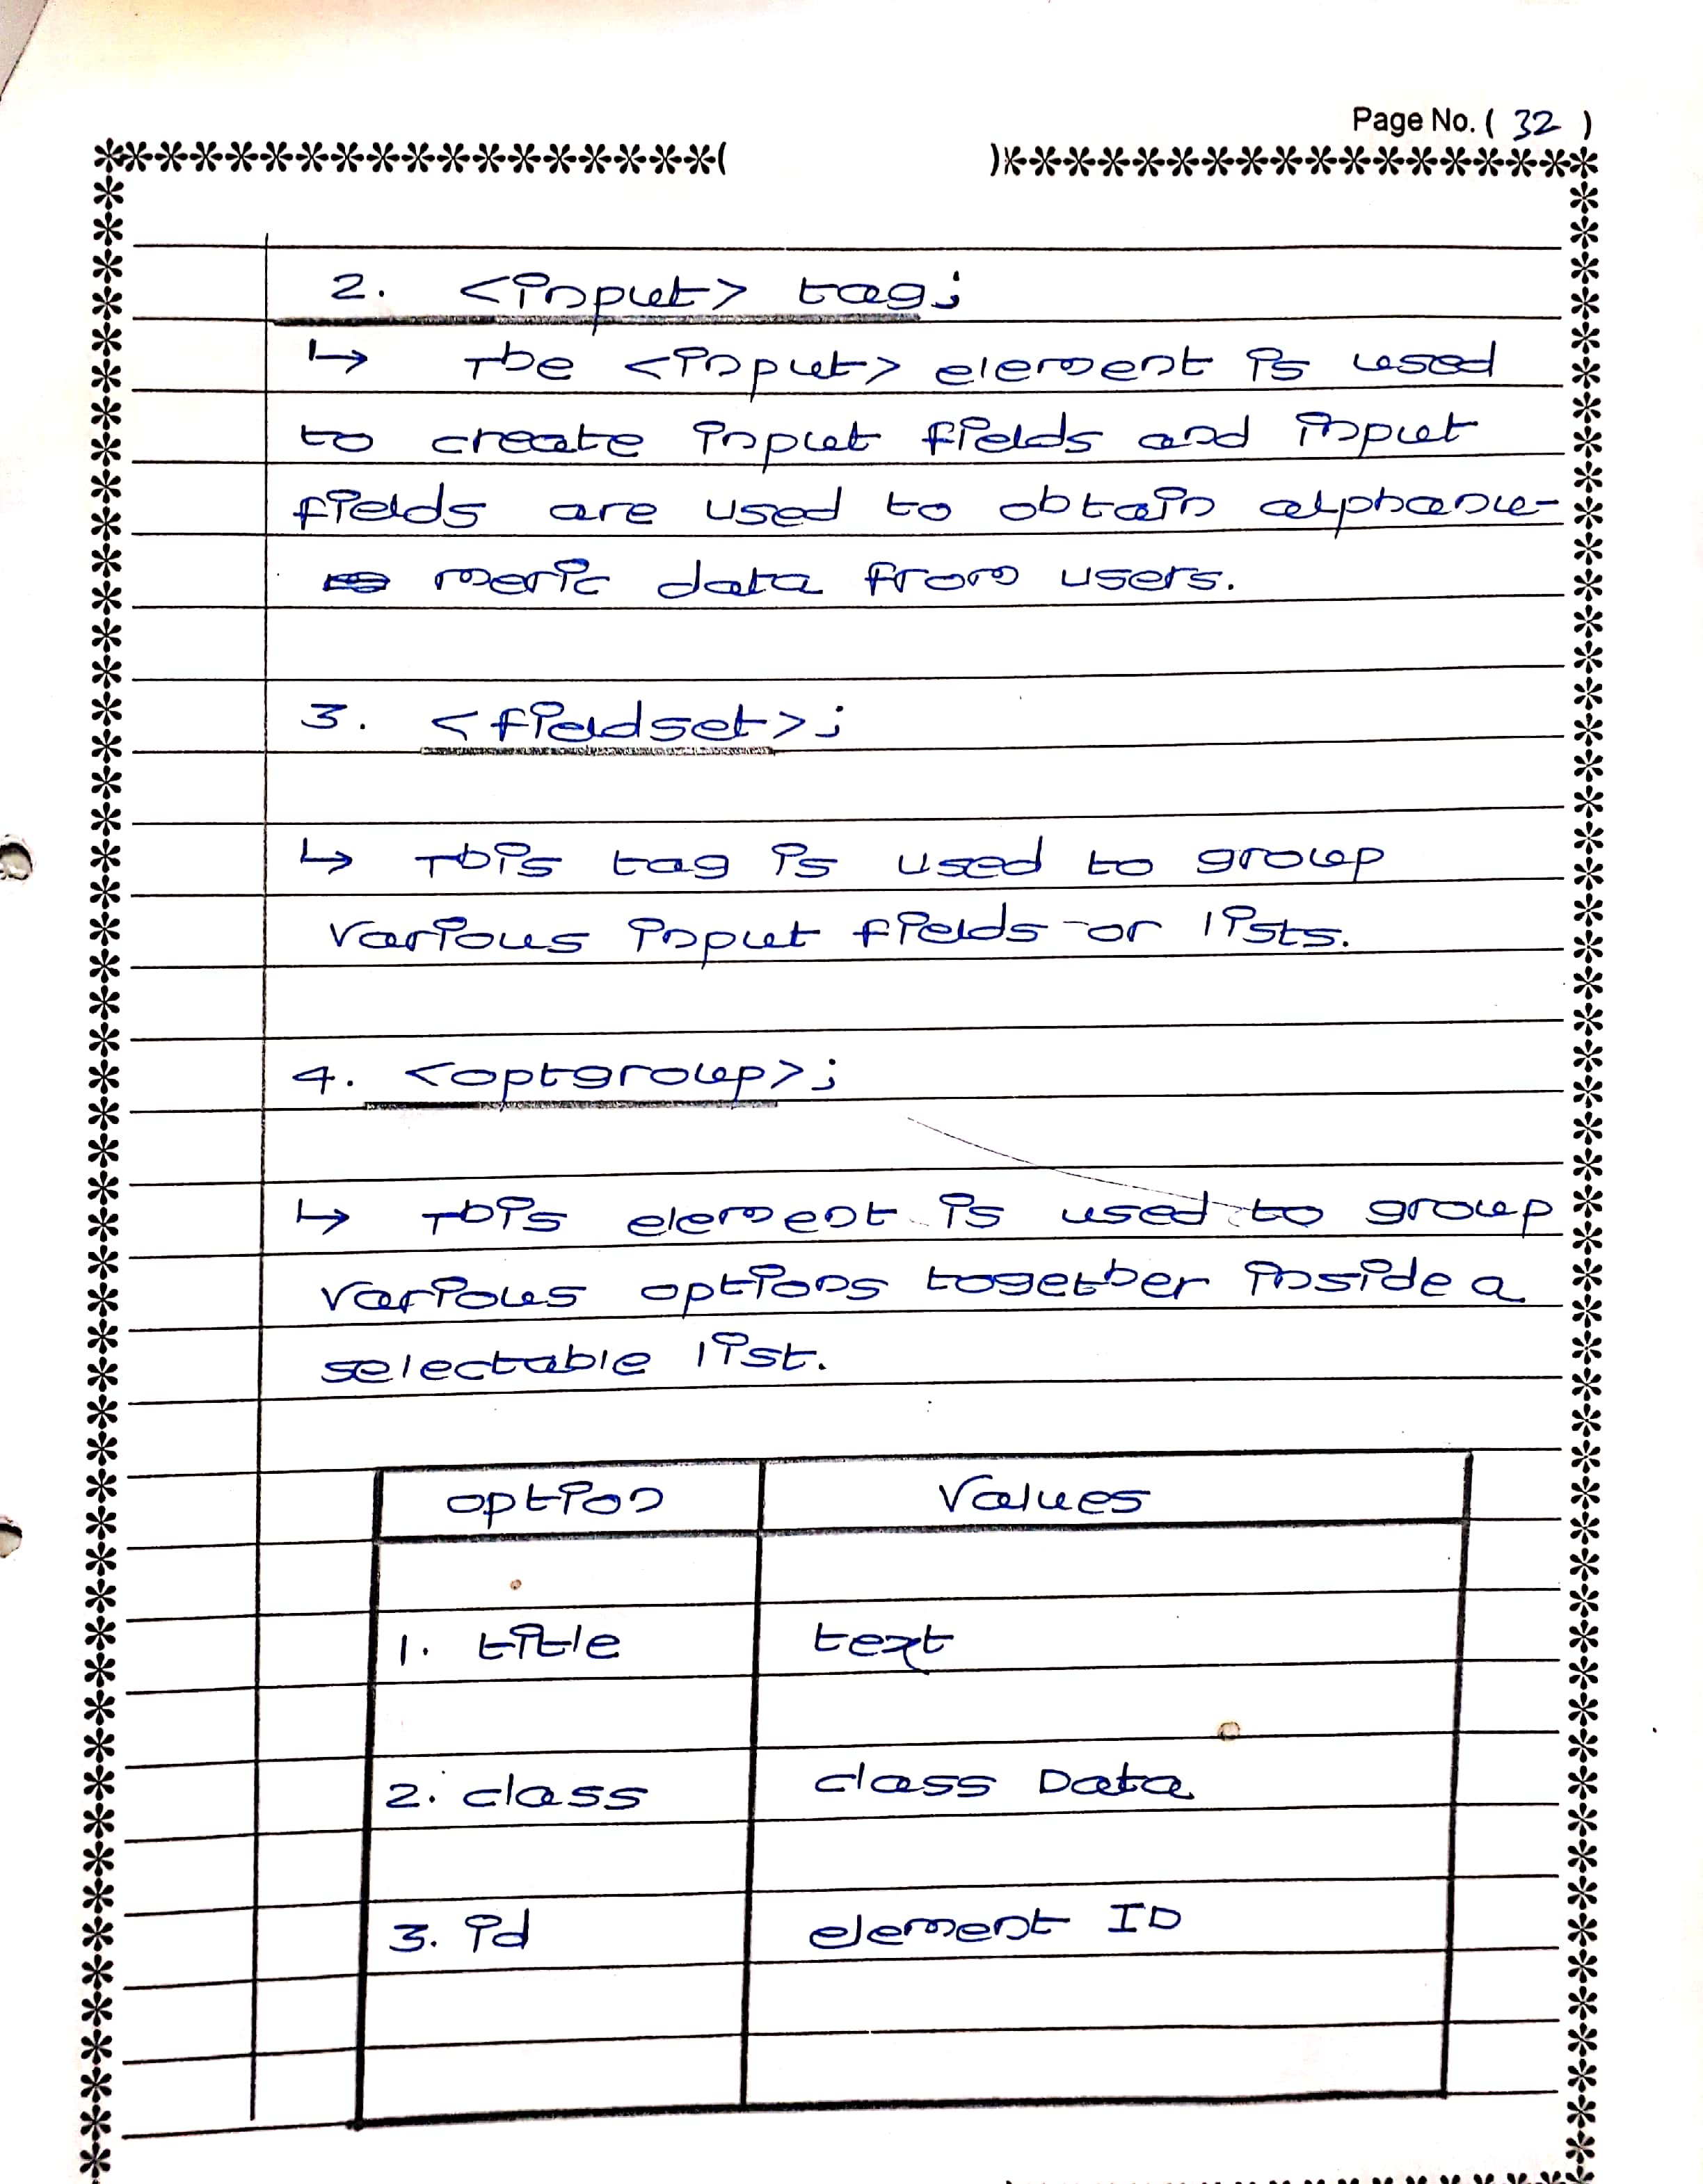 Page No. ( 32 )
2. <input> tag;
↳ The <input> element is used
to create input fields and input
fields are used to obtain alphanu-
meric data from users.
3. <fieldset>;
↳ This tag is used to group
various input fields or lists.
4. <optgroup>;
↳ This element is used to group
various options together inside a
selectable list.
option Values
1. title text
2. class class Data
3. id element ID